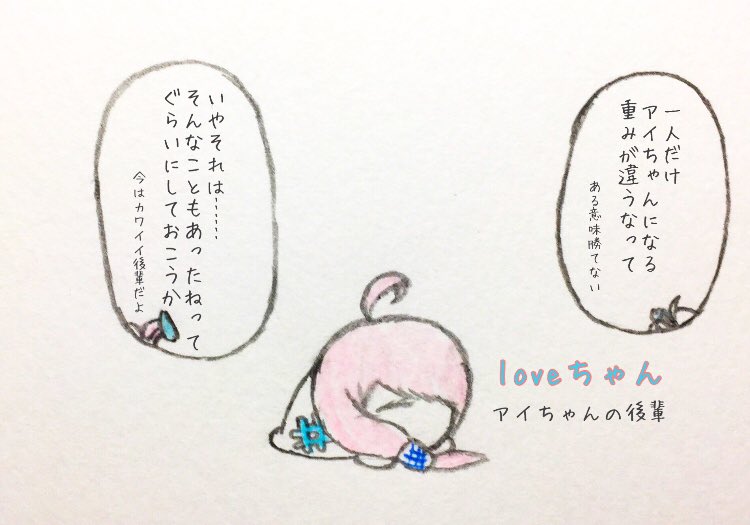 一人だけ
アイちゃんになる
重みが違うなって
ある意味勝てない
いやそれは……
そんなこともあったねって
ぐらいにしておこうか
今はカワイイ後輩だよ
loveちゃん
アイちゃんの後輩